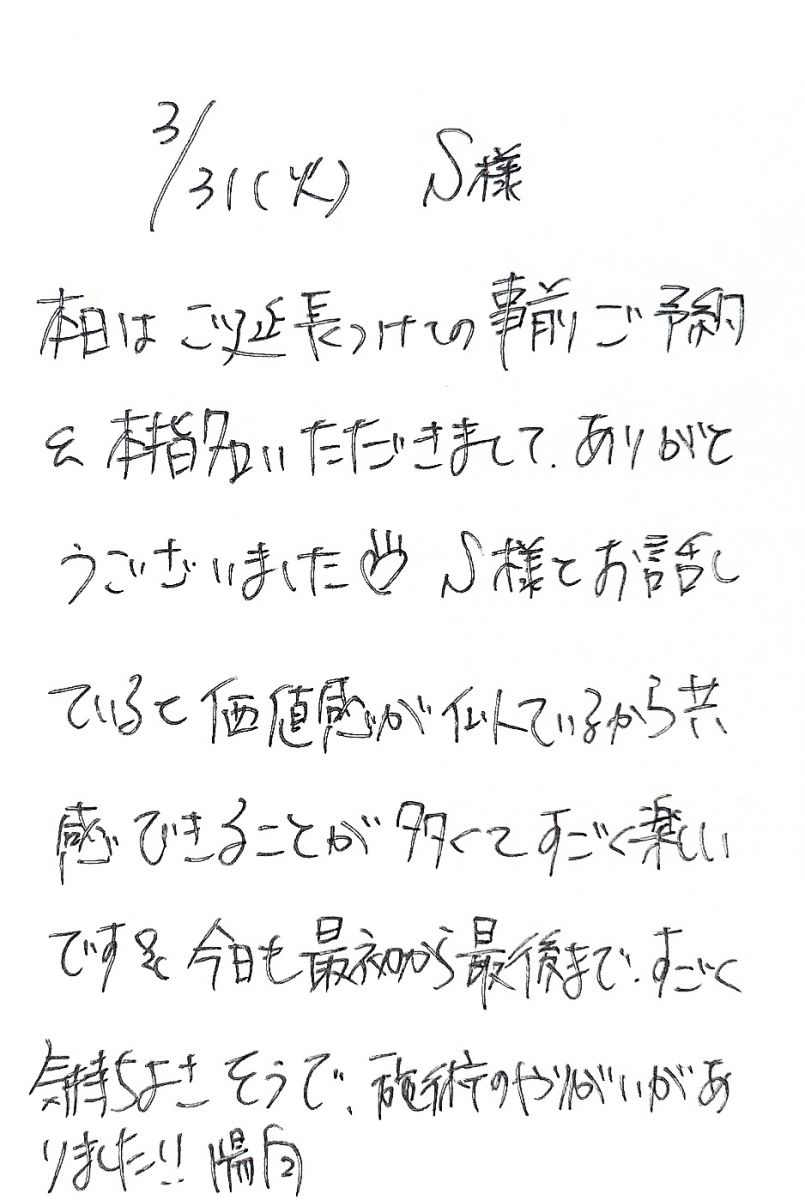 3/31(火) S様
本日はご延長つけての事前ご予約
&本指名いただきまして、ありがと
うございました S様とお話し
ていると価値感が似ているから共
感できることが多くてすごく楽しい
です 今日も最初から最後まで、すごく
気持ちよさそうで、施術のやりがいがあ
りました!! 陽向